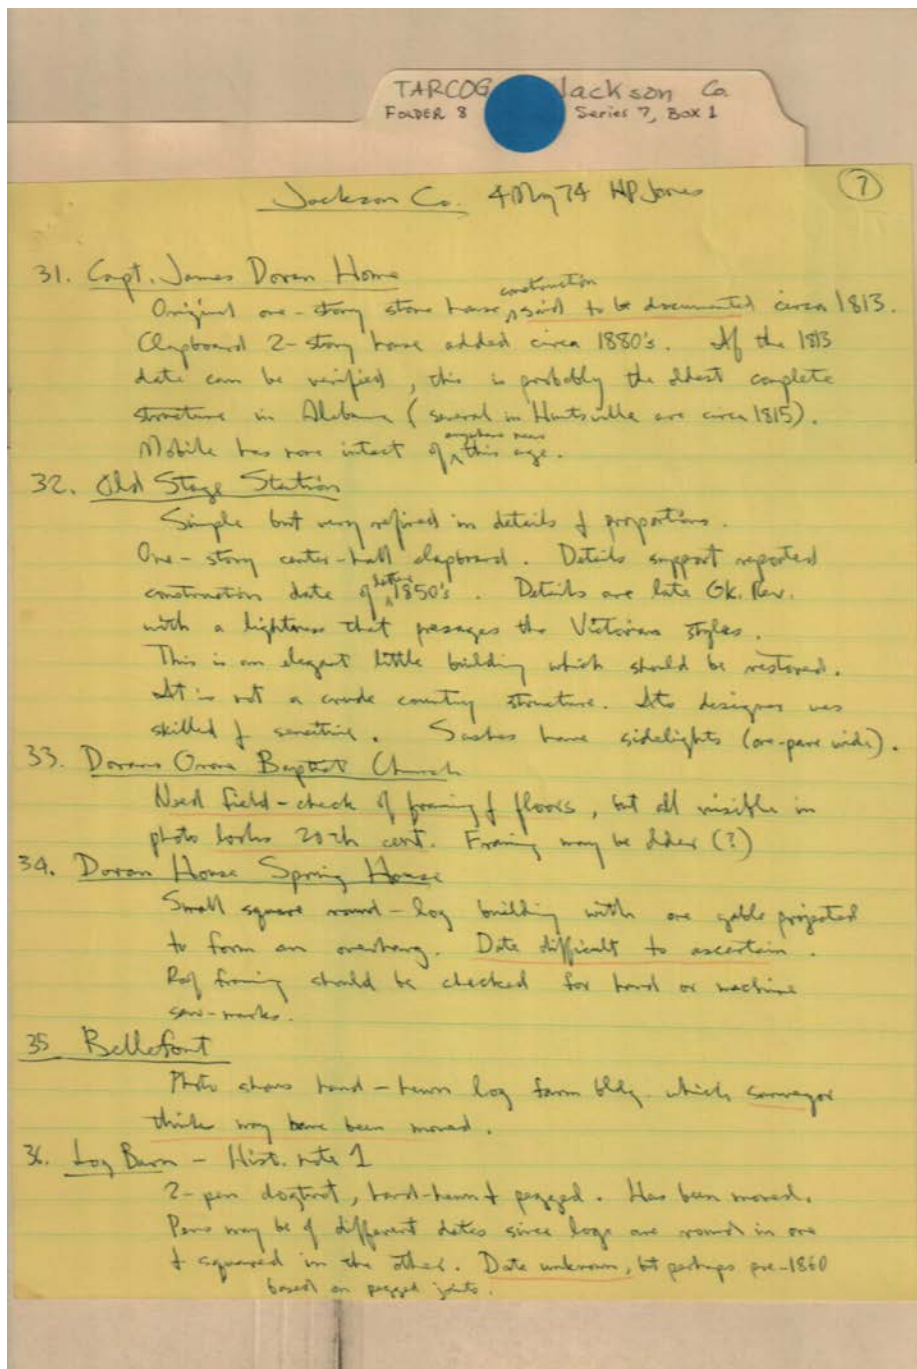 TARCOG Jackson Co.
FOLDER 8 Series 7, Box 1
Jackson Co. 4 May 74 HP Jones 7
31. Capt. James Doran Home
construction
Original one-story stone house said to be documented circa 1813.
Clapboard 2-story house added circa 1880's. If the 1813
date can be verified, this is probably the oldest complete
structure in Alabama (several in Huntsville are circa 1815).
anywhere near
Mobile has none intact of this age.
32. Old Stage Station
Simple but very refined in details & proportions.
One-story center-hall clapboard. Details support reported
construction date of 1850's. Details are late Gk. Rev.
with a lightness that presages the Victorian styles.
This is an elegant little building which should be restored.
It is not a crude country structure. Its designer was
skilled & sensitive. Sashes have sidelights (one-pane wide).
33. Dorans Baptist Church
Need field-check of framing & floors, but all visible in
photo looks 20th cent. Framing may be older (?)
34. Doran House Spring House
Small square round-log building with one gable projected
to form an overhang. Date difficult to ascertain.
Roof framing should be checked for hand or machine
saw-marks.
35 Bellefont
Photo shows hand-hewn log farm bldg. which surveyor
thinks may have been moved.
36. Log Barn - Hist. note 1
2-pen dogtrot, hand-hewn & pegged. Has been moved.
Pens may be of different dates since logs are round in one
& squared in the other. Date unknown, bt perhaps pre-1860
based on pegged joints.